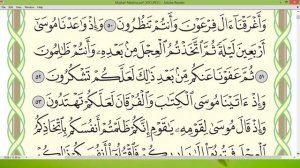 Adobe Reader
وَأَغْرَقْنَا ءَالَ فِرْعَوْنَ وَأَنتُمْ تَنظُرُونَ ٥٠ وَإِذْ وَٰعَدْنَا مُوسَىٰٓ
أَرْبَعِينَ لَيْلَةً ثُمَّ ٱتَّخَذْتُمُ ٱلْعِجْلَ مِنۢ بَعْدِهِۦ وَأَنتُمْ ظَٰلِمُونَ
٥١ ثُمَّ عَفَوْنَا عَنكُم مِّنۢ بَعْدِ ذَٰلِكَ لَعَلَّكُمْ تَشْكُرُونَ ٥٢
وَإِذْ ءَاتَيْنَا مُوسَى ٱلْكِتَٰبَ وَٱلْفُرْقَانَ لَعَلَّكُمْ تَهْتَدُونَ ٥٣
وَإِذْ قَالَ مُوسَىٰ لِقَوْمِهِۦ يَٰقَوْمِ إِنَّكُمْ ظَلَمْتُمْ أَنفُسَكُم بِٱتِّخَاذِكُمُ